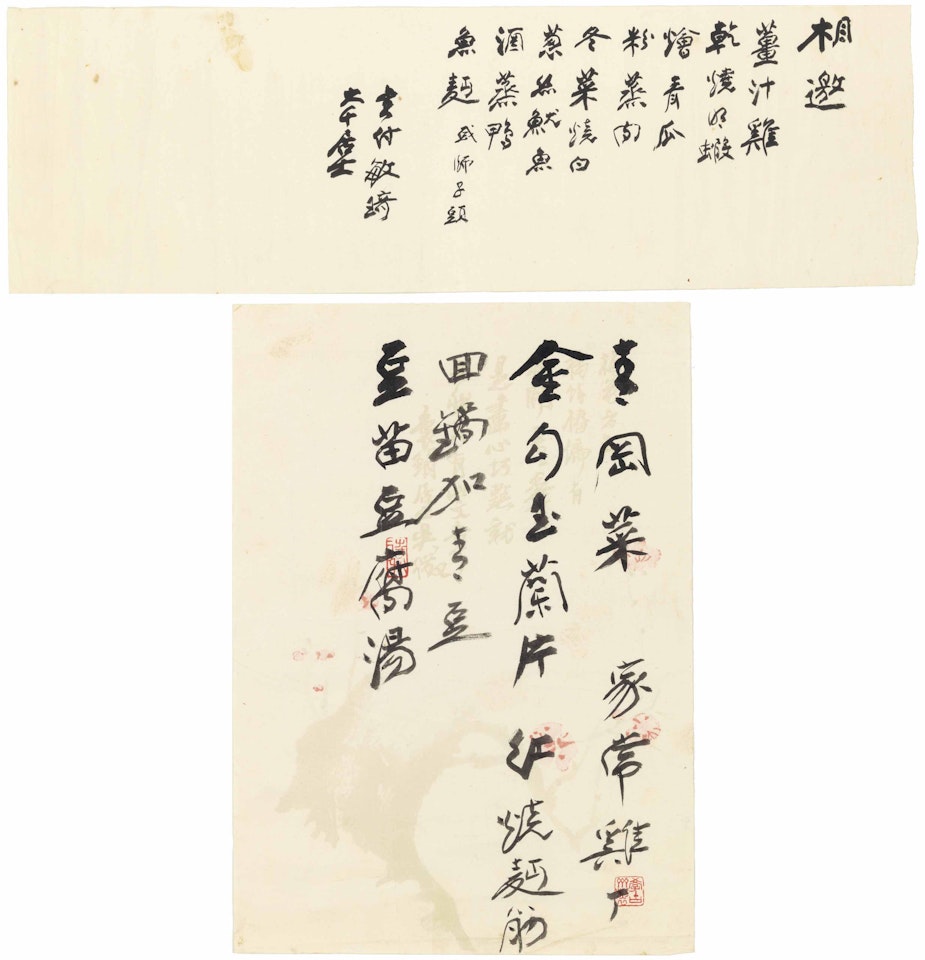 相邀
薑汁雞
乾燒明蝦
燴青瓜
粉蒸肉
冬菜燒白
蔥絲魷魚
酒蒸鴨
魚麵 或師子頭
敏琦
大千居士
青岡菜 家常雞丁
金勾玉蘭片 紅燒麵筋
回鍋加青豆
豆苗豆腐湯